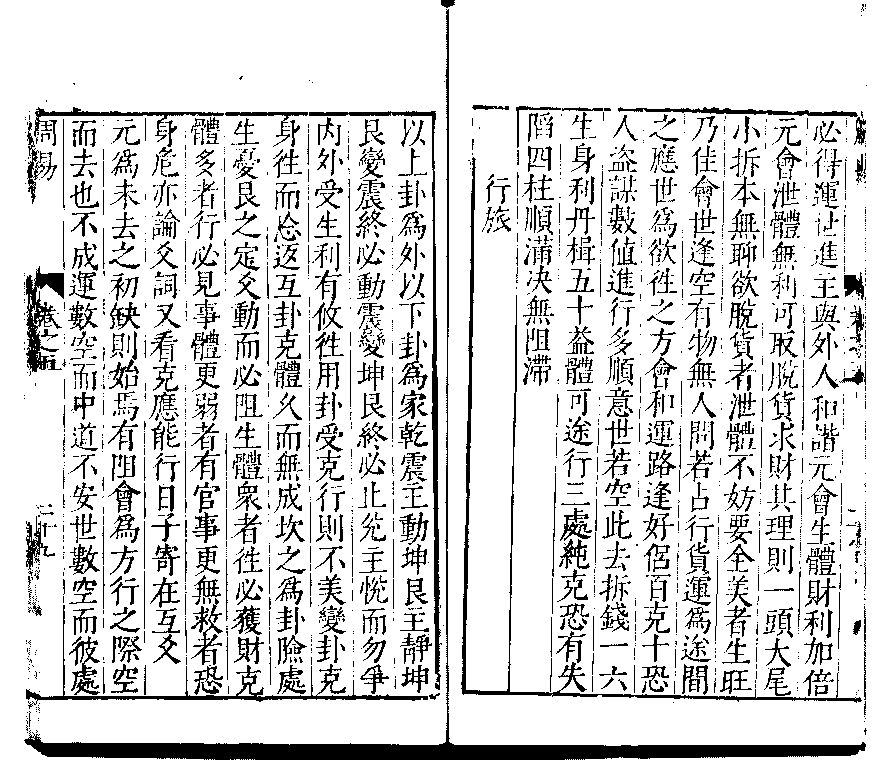 必得運世進主與外人和諧元會生體財利加倍
元會泄體無利可取脫貨求財其理則一頭大尾
小拆本無聊欲脫貨者泄體不妨要全美者生旺
乃佳會世逢空有物無人問若占行貨運爲途間
之應世爲欲徃之方會和運路逢好侶百克十恐
人盗謀數値進行多順意世若空此去拆錢一六
生身利丹楫五十益體可途行三處純克恐有失
陷四柱順滿决無阻滯
行旅
以上卦爲外以下卦爲家乾震主動坤艮主靜坤
艮變震終必動震變坤艮終必止兊主悅而勿爭
内外受生利有攸徃用卦受克行則不美變卦克
身徃而忩返互卦克體久而無成坎之爲卦險處
生憂艮之定爻動而必阻生體衆者徃必獲財克
體多者行必見事體更弱者有官事更無救者恐
身危亦論爻詞又看克應能行日子寄在互爻
元爲未去之初缺則始焉有阻會爲方行之際空
而去也不成運數空而中道不安世數空而彼處
周易
卷之五
二十九